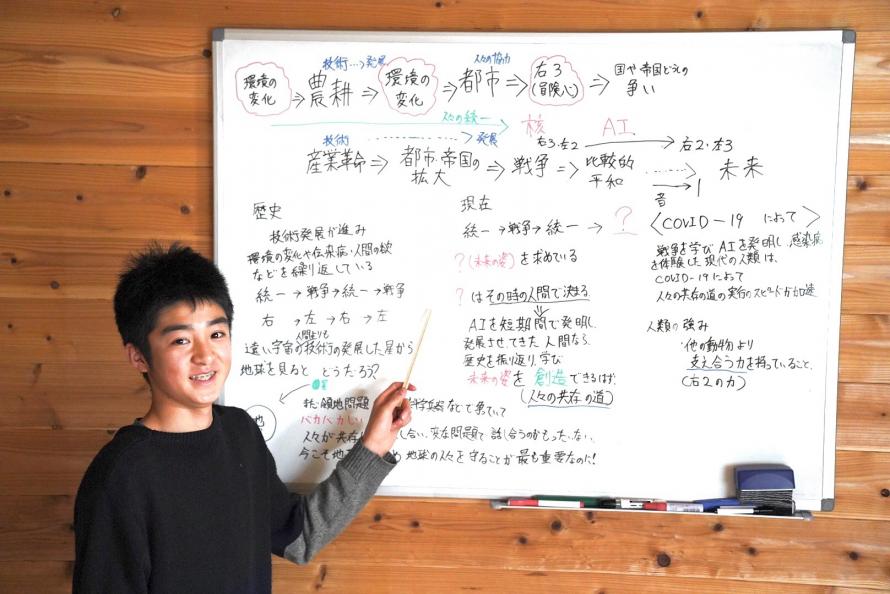 技術…→発展
人々の協力
環境の変化 ⇒ 農耕 ⇒ 環境の変化 ⇒ 都市 ⇒ 右3(冒険心) ⇒ 国や帝国どうしの争い
人々の統一
核
AI
技術 発展
右3・左2
右2・左3
産業革命 ⇒ 都市・帝国の拡大 ⇒ 戦争 ⇒ 比較的平和 …→ 未来
歴史
技術発展が進み
環境の変化や伝染病・人間の欲
などを繰り返している
統一→戦争→統一→戦争
右→左→右→左
人間よりも
遠い宇宙の技術の発展した星から
地球を見ると どうだろう?
領地問題
などで争っていて
バカバカしい
人々が共存
し合い、変な問題で話し合うのがもったいない、
今こそ地球
地球の人々を守ることが最も重要なのに!
現在
統一→戦争→統一→?
?(未来の姿)を求めている
?はその時の人間で決まる
AIを短期間で発明し、
発展させてきた人間なら、
歴史を振り返り、学び
未来の姿を創造できるはず。
(人々の共存の道)
〈COVID-19 によって〉
戦争を学び AIを発明し、感染病
を体験した現代の人類は、
COVID-19によって
人々の共存の道の実行のスピードが加速
人類の強み
・他の動物より
支え合う力を持っていること。
(右2の力)